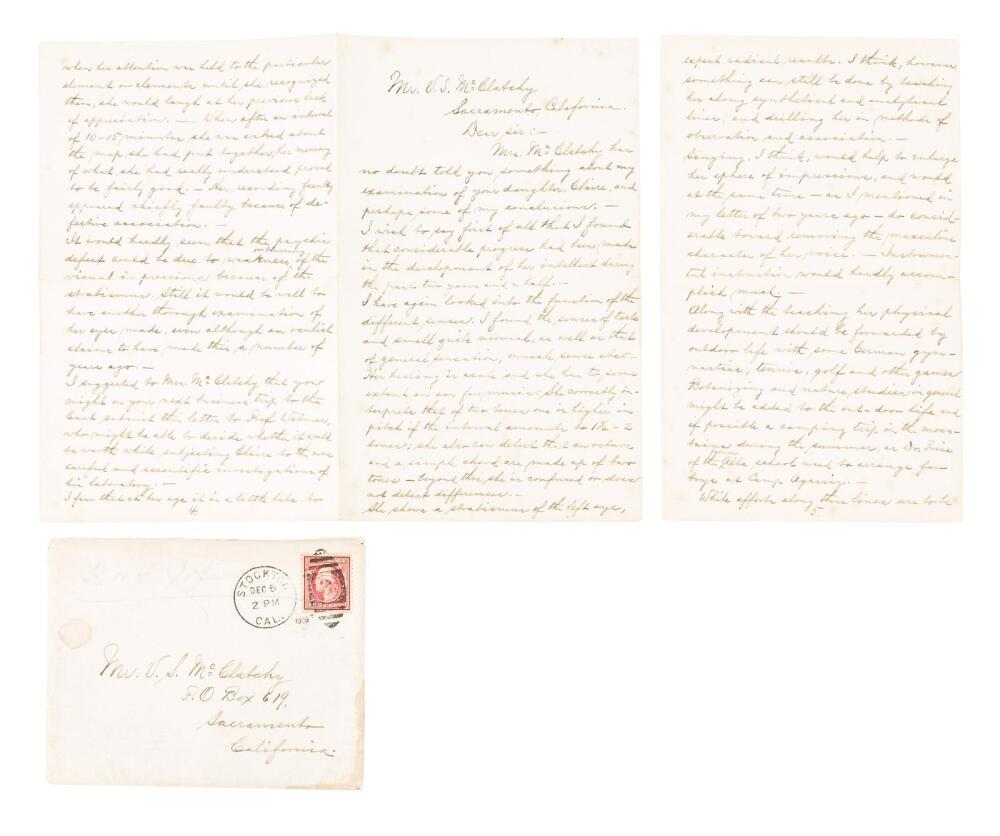 Mr. V. S. McClatchy
Sacramento, California.
Dear sir:—
Mrs. McClatchy has
no doubt told you something about my
examination of your daughter, Claire, and
perhaps some of my conclusions. —
I wish to say first of all that I found
that considerable progress had been made
in the development of her intellect during
the past two years and a half. —
I have again looked into the function of the
different senses. I found the senses of taste
and smell quite normal, as well as that
of general sensation, muscle sense etc. —
Her hearing is acute and she has to some
extent an ear for music. She correctly in-
terprets that of two tones one is higher in
pitch if the interval amounts to 1½ – 2
tones; she also can detect that an octave
and a simple chord are made up of two
tones — beyond this she is confused or does
not detect differences. —
She shows a strabismus of the left eye,
when her attention was held to the particular
element or elements until she recognized
them, she would laugh at her previous lack
of appreciation. — When after an interval
of 10-15 minutes she was asked about
the map she had just put together, her memory
of what she had really understood proved
to be fairly good. — Her recording faculty
appeared chiefly faulty because of de-
fective association. —
It would hardly seem that the psychic
defect could be due to weakness of the
visual impressions because of the
strabismus. Still it would be well to
have another thorough examination of
her eyes made, even although an oculist
claims to have made this a number of
years ago. —
I suggested to Mrs. McClatchy that you
might on your next business trip to the
East submit this letter to Prof. Witmer,
who might be able to decide whether it would
be worth while subjecting Claire to the more
careful and scientific investigations of
his laboratory. —
I fear that at her age it is a little late to
4.
expect radical results. I think, however,
something can still be done by teaching
her along synthetical and analytical
lines, and drilling her in methods of
observation and association. —
Singing, I think, would help to enlarge
her sphere of impressions, and would
at the same time — as I mentioned in
my letter of two years ago — do consid-
erable toward removing the masculine
character of her voice. — Instrumen-
tal instruction would hardly accom-
plish much. —
Along with the teaching her physical
development should be forwarded by
outdoor life with some German gym-
nastics, tennis, golf and other games
Botanizing and nature studies in general
might be added to the out-door life and
if possible a camping trip in the moun-
tains during the summer, as Dr.
of the school used to arrange for
boys at Camp Agassiz. —
While efforts along these lines are to be
5.
STOCKTON,
DEC 5
2 PM
CAL.
1909
Mr. V. S. McClatchy
P. O. Box 619.
Sacramento
California.